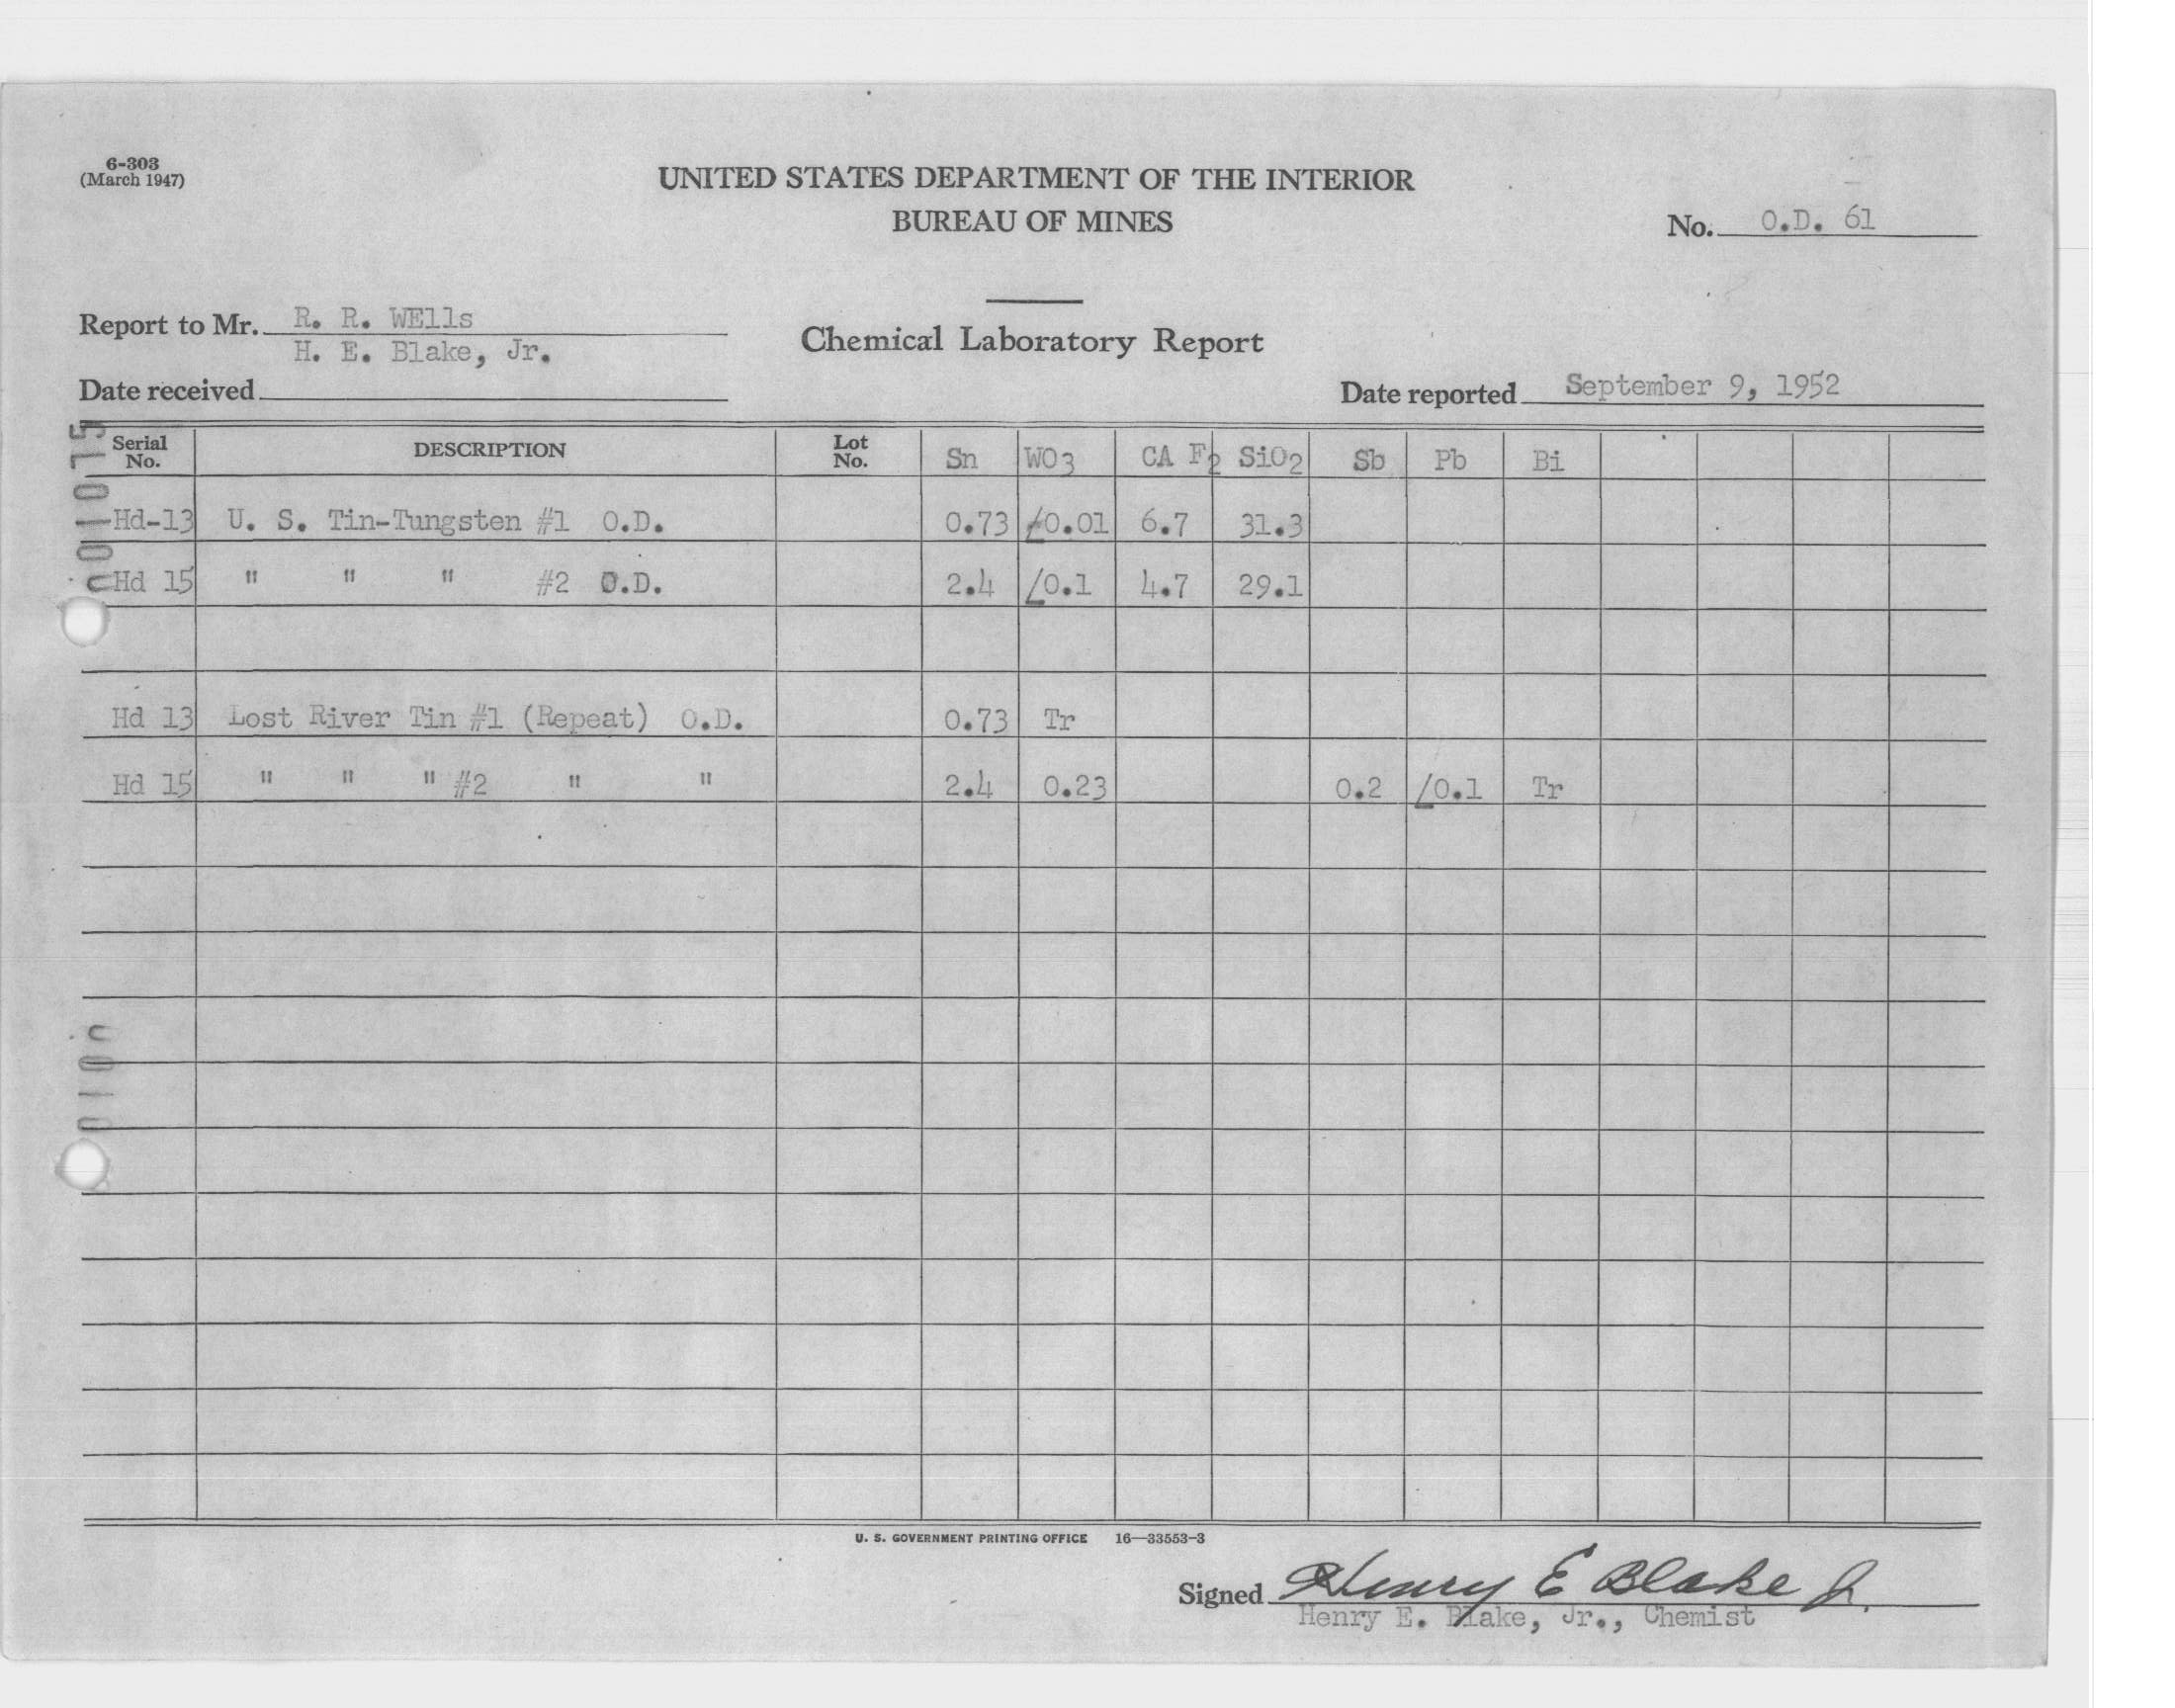 6-303
(March 1947)
UNITED STATES DEPARTMENT OF THE INTERIOR
BUREAU OF MINES
No. O.D. 61
Report to Mr. R. R. WElls
H. E. Blake, Jr.
Chemical Laboratory Report
Date received
Date reported September 9, 1952
Serial No. DESCRIPTION Lot No. Sn WO3 CA F2 SiO2 Sb Pb Bi
Hd-13 U. S. Tin-Tungsten #1 O.D. 0.73 /0.01 6.7 31.3
Hd 15 " " " #2 O.D. 2.4 /0.1 4.7 29.1
Hd 13 Lost River Tin #1 (Repeat) O.D. 0.73 Tr
Hd 15 " " " #2 " " 2.4 0.23 0.2 /0.1 Tr
U. S. GOVERNMENT PRINTING OFFICE 16—33553-3
Signed Henry E Blake Jr.
Henry E. Blake, Jr., Chemist